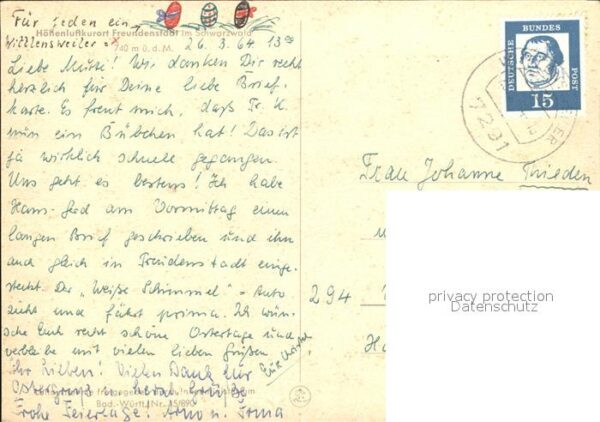 Für jeden ein
Höhenluftkurort Freudenstadt im Schwarzwald
Wittlensweiler
740 m ü. d. M.
26. 3. 64 13°°
Liebe Musi! Wir danken Dir recht
herzlich für Deine liebe Brief-
karte. Es freut mich, daß Fr. K.
nun ein Bübchen hat! Das ist
ja wirklich schnell gegangen.
Uns geht es bestens! Ich habe
Hans-Gerd am Vormittag einen
langen Brief geschrieben und ihn
auch gleich in Freudenstadt einge-
steckt. Der "Weiße Schimmel" - Auto
zieht und fährt prima. Ich wün-
sche Euch recht schöne Ostertage und
verbleibe mit vielen lieben Grüßen
Ihr Lieben! Vielen Dank für
Ostergruß u. herzl. Grüße
Bad.-Württ. Nr. 15/890
Frohe Feiertage! Arno u. Irma
DEUTSCHE BUNDESPOST
15
7291
Frau Johanne Frieden
294
privacy protection
Datenschutz